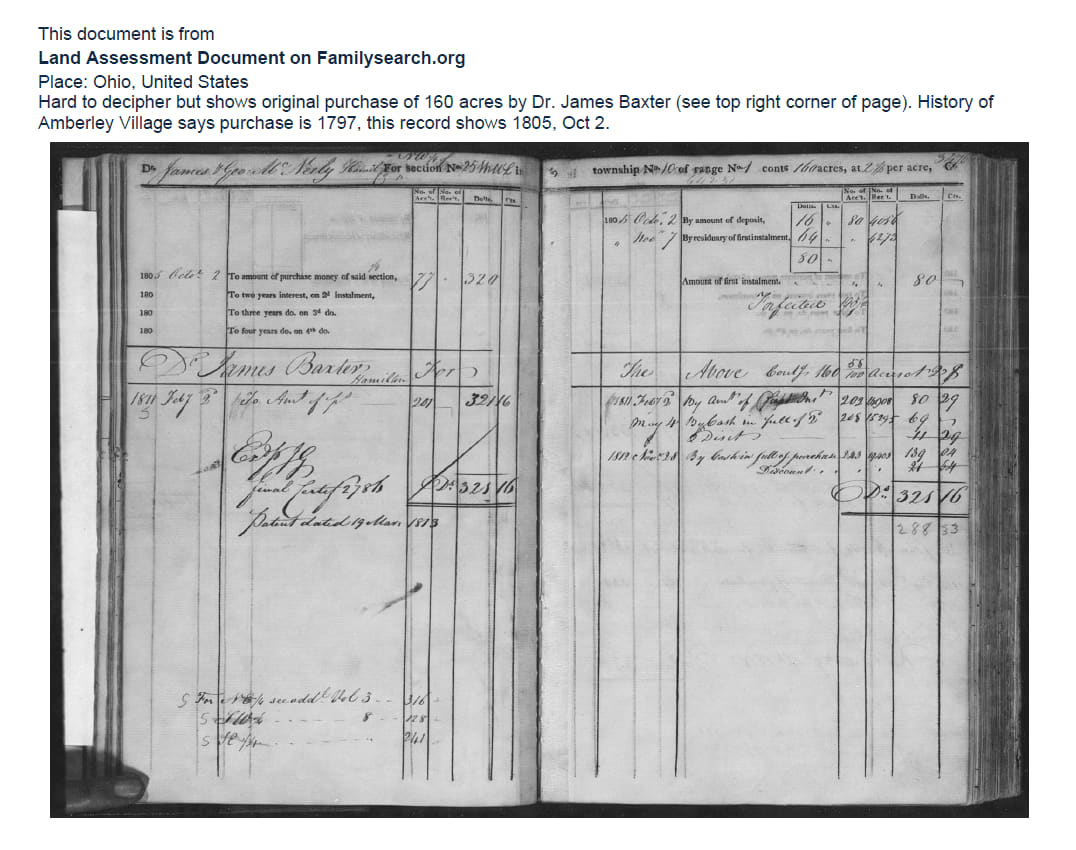 This document is from
Land Assessment Document on Familysearch.org
Place: Ohio, United States
Hard to decipher but shows original purchase of 160 acres by Dr. James Baxter (see top right corner of page). History of
Amberley Village says purchase is 1797, this record shows 1805, Oct 2.
Dr James & Geo For section No 25
No. of Acc't. No. of Rec't. Dolls. Cts.
1805 Octo 2 To amount of purchase money of said section, 77 320
180 To two years interest, on 2d instalment,
180 To three years do. on 3d do.
180 To four years do. on 4th do.
Dr James Baxter Hamilton For
1811 Feby 201 321 16
final Certif 2786 Ds 321 16
Patent dated 19 Mar. 1813
For see addl Vol 3 316
8 128
241
township No 10 of range No 1 conts 160 acres, at 2 per acre, Cr
Dolls. Cts. No. of Acc't. No. of Rec't. Dolls. Cts.
1805 Octo. 2 By amount of deposit, 16 80
" Nov 7 By residuary of first instalment, 64 " 4273
80
Amount of first instalment. 80
Forfeited
The Above Contg 160 58/100 acres at 2
1811 Feby By amt of 202 80 29
May 4 By Cash in full of 2 208 15295 69
Disct 11 29
1812 Novr 28 By Cash in full of purchase 243 139 04
Discount 21 54
Ds 321 16
288 33